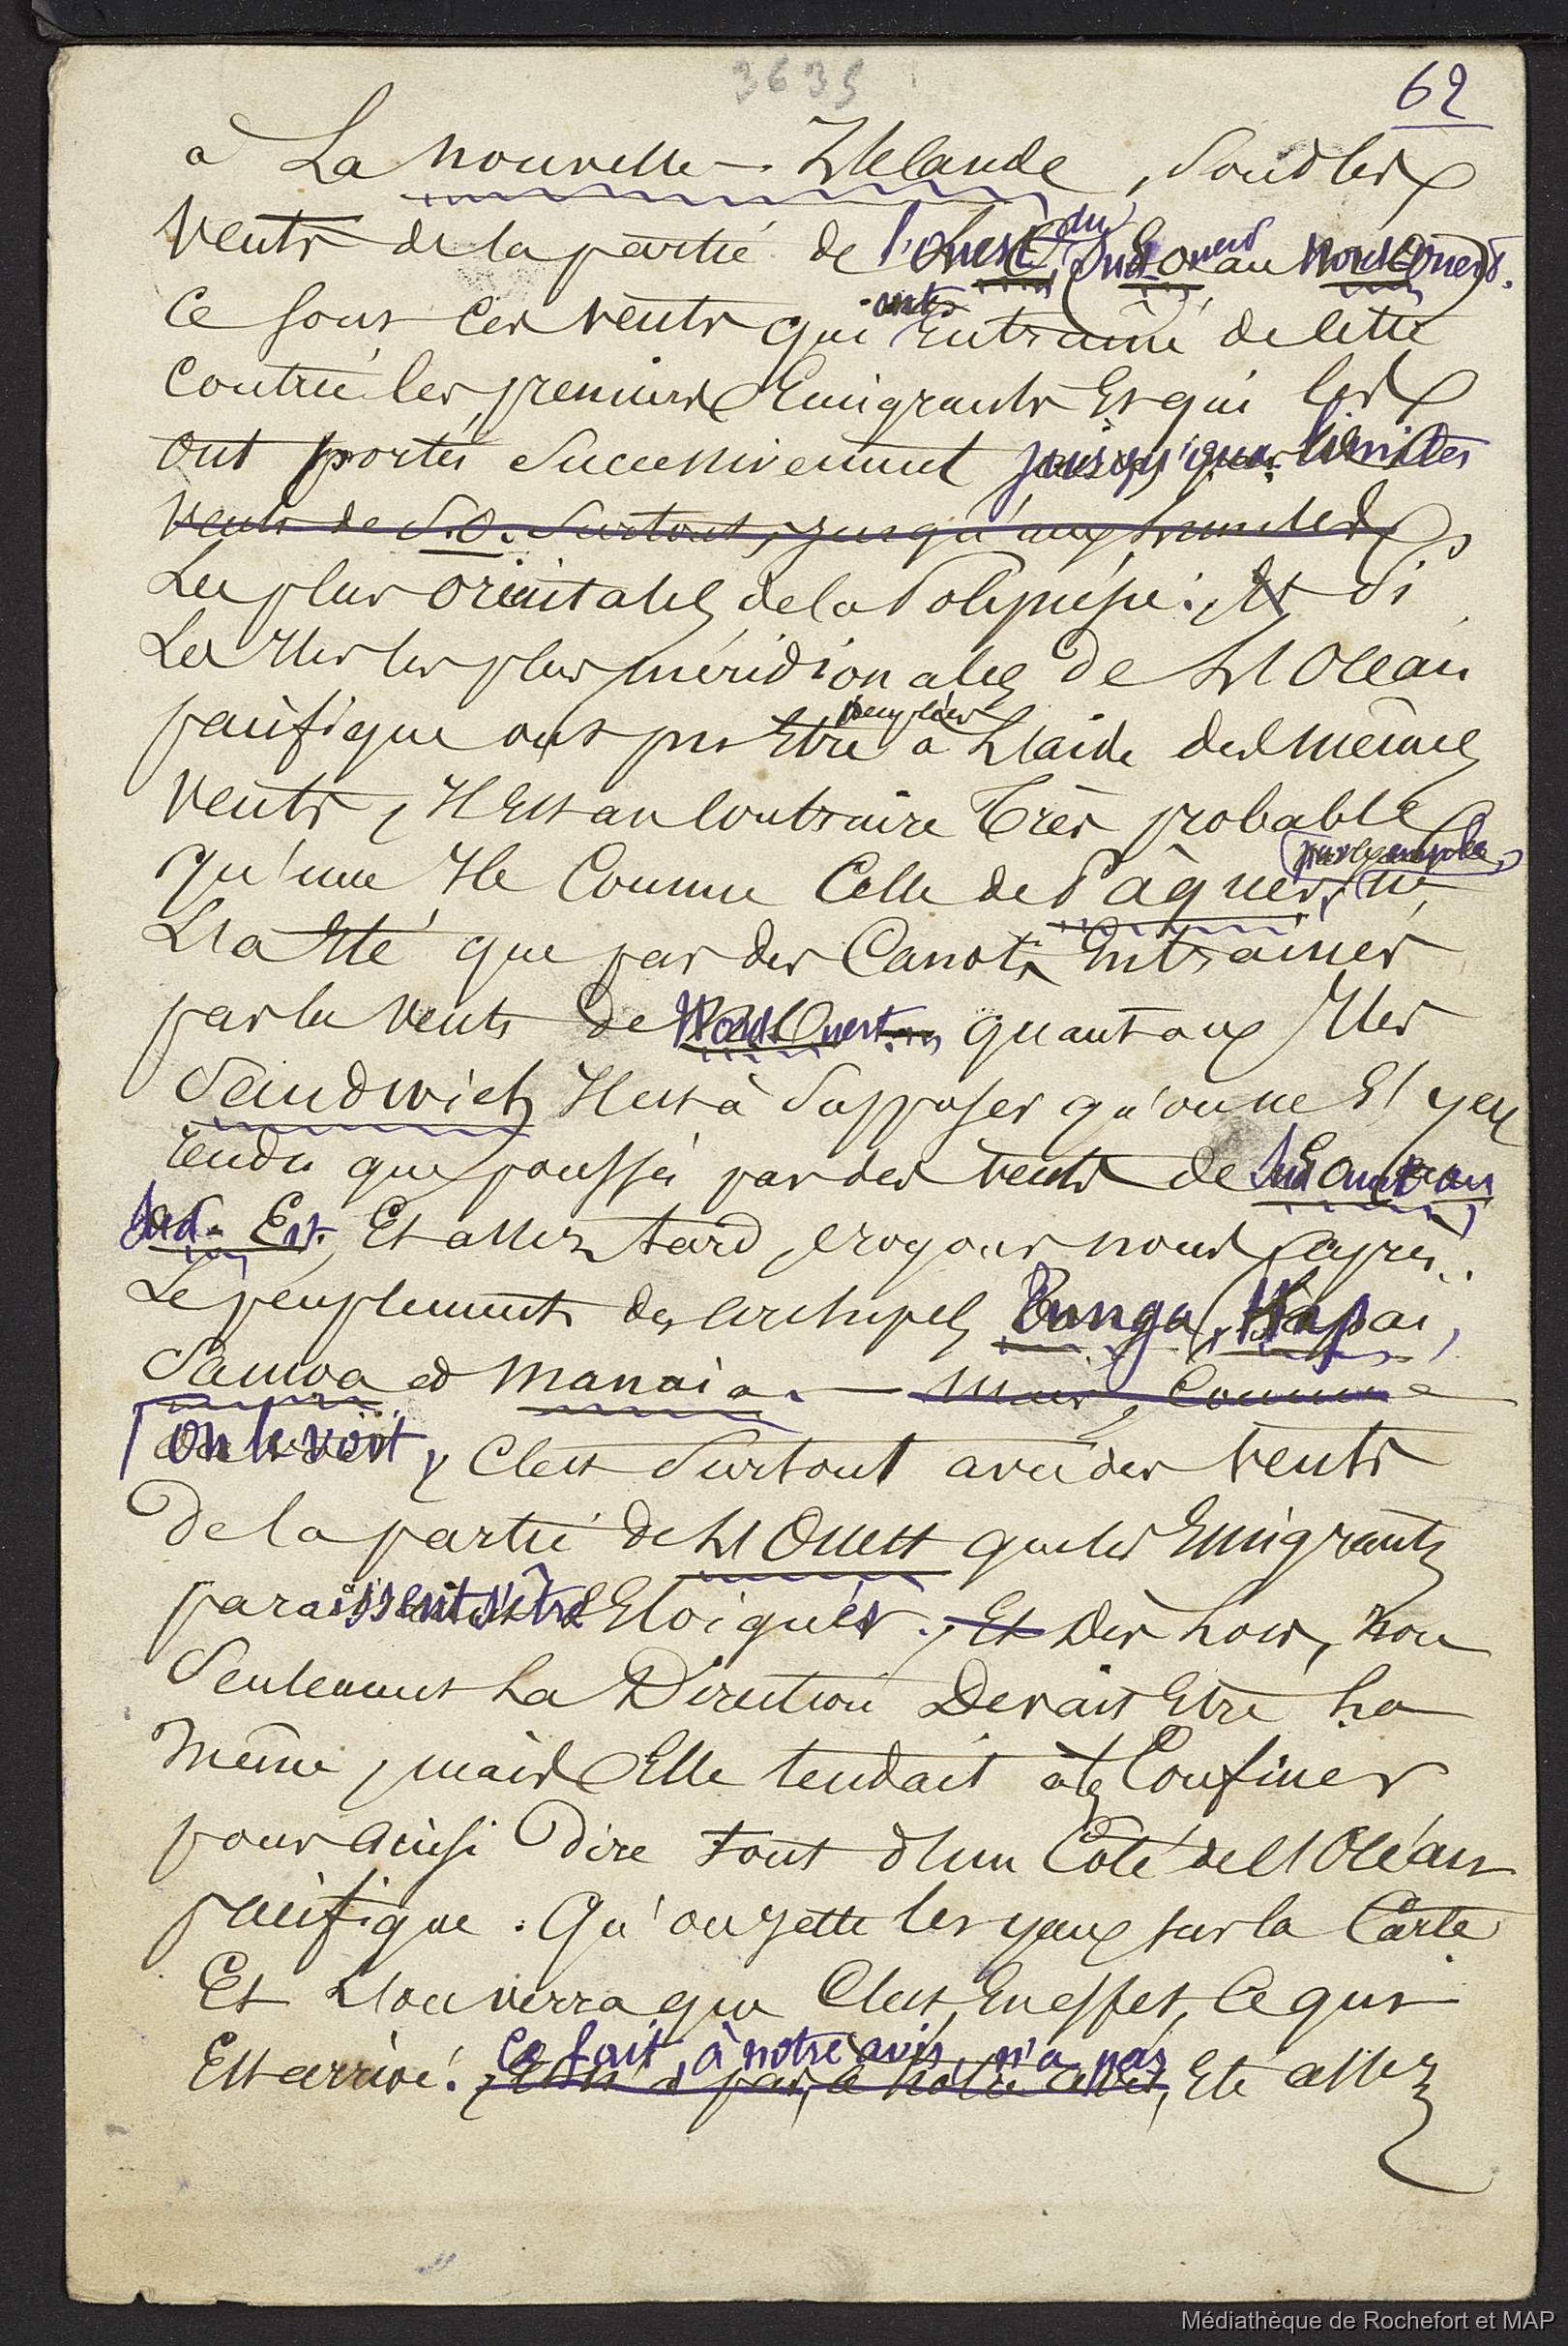 3635
62
à La nouvelle-Zélande, sont les
vents de la partie de l'Ouest, du (Sud Ouest au Nord Ouest).
Ce sont ces vents qui ont entrainé de cette
contrée les premiers Emigrants Et qui les
ont portés successivement jusqu'aux limites
vents de S.O. surtout, jusqu'aux limites
Les plus orientales de la Polynésie. Et Si
Les Iles les plus méridionales de L'Océan
pacifique ont pu Etre peuplées à L'aide des mêmes
vents, Il Est au contraire très probable
qu'une Ile Comme Celle de Pâques, par exemple, ne
L'a Eté que par des Canots Entrainés
par les vents de Nord Ouest, quant aux Iles
Sandwich Il est à Supposer qu'on ne S'y est
rendu que poussé par des vents de Sud Ouest ou
Sud-Est, Et assez tard, croyons nous, après
Le peuplement des archipels Tunga, Hapai,
Samoa et Manaia. — Mais, Comme
on le voit, C'est Surtout avec des vents
De la partie de L'Ouest que les Emigrants
paraissent s'être Eloignés. Et Dès Lors, non
Seulement La Direction Devait Etre La
même, mais Elle tendait à les Confiner
pour ainsi Dire tout d'un Coté de l'Océan
pacifique. Qu'on jette les yeux sur la Carte
Et L'on verra que C'est, En effet, Ce qui
Est arrivé. Ce fait, à notre avis, n'a pas
à notre avis, Eté assez
Médiathèque de Rochefort et MAP